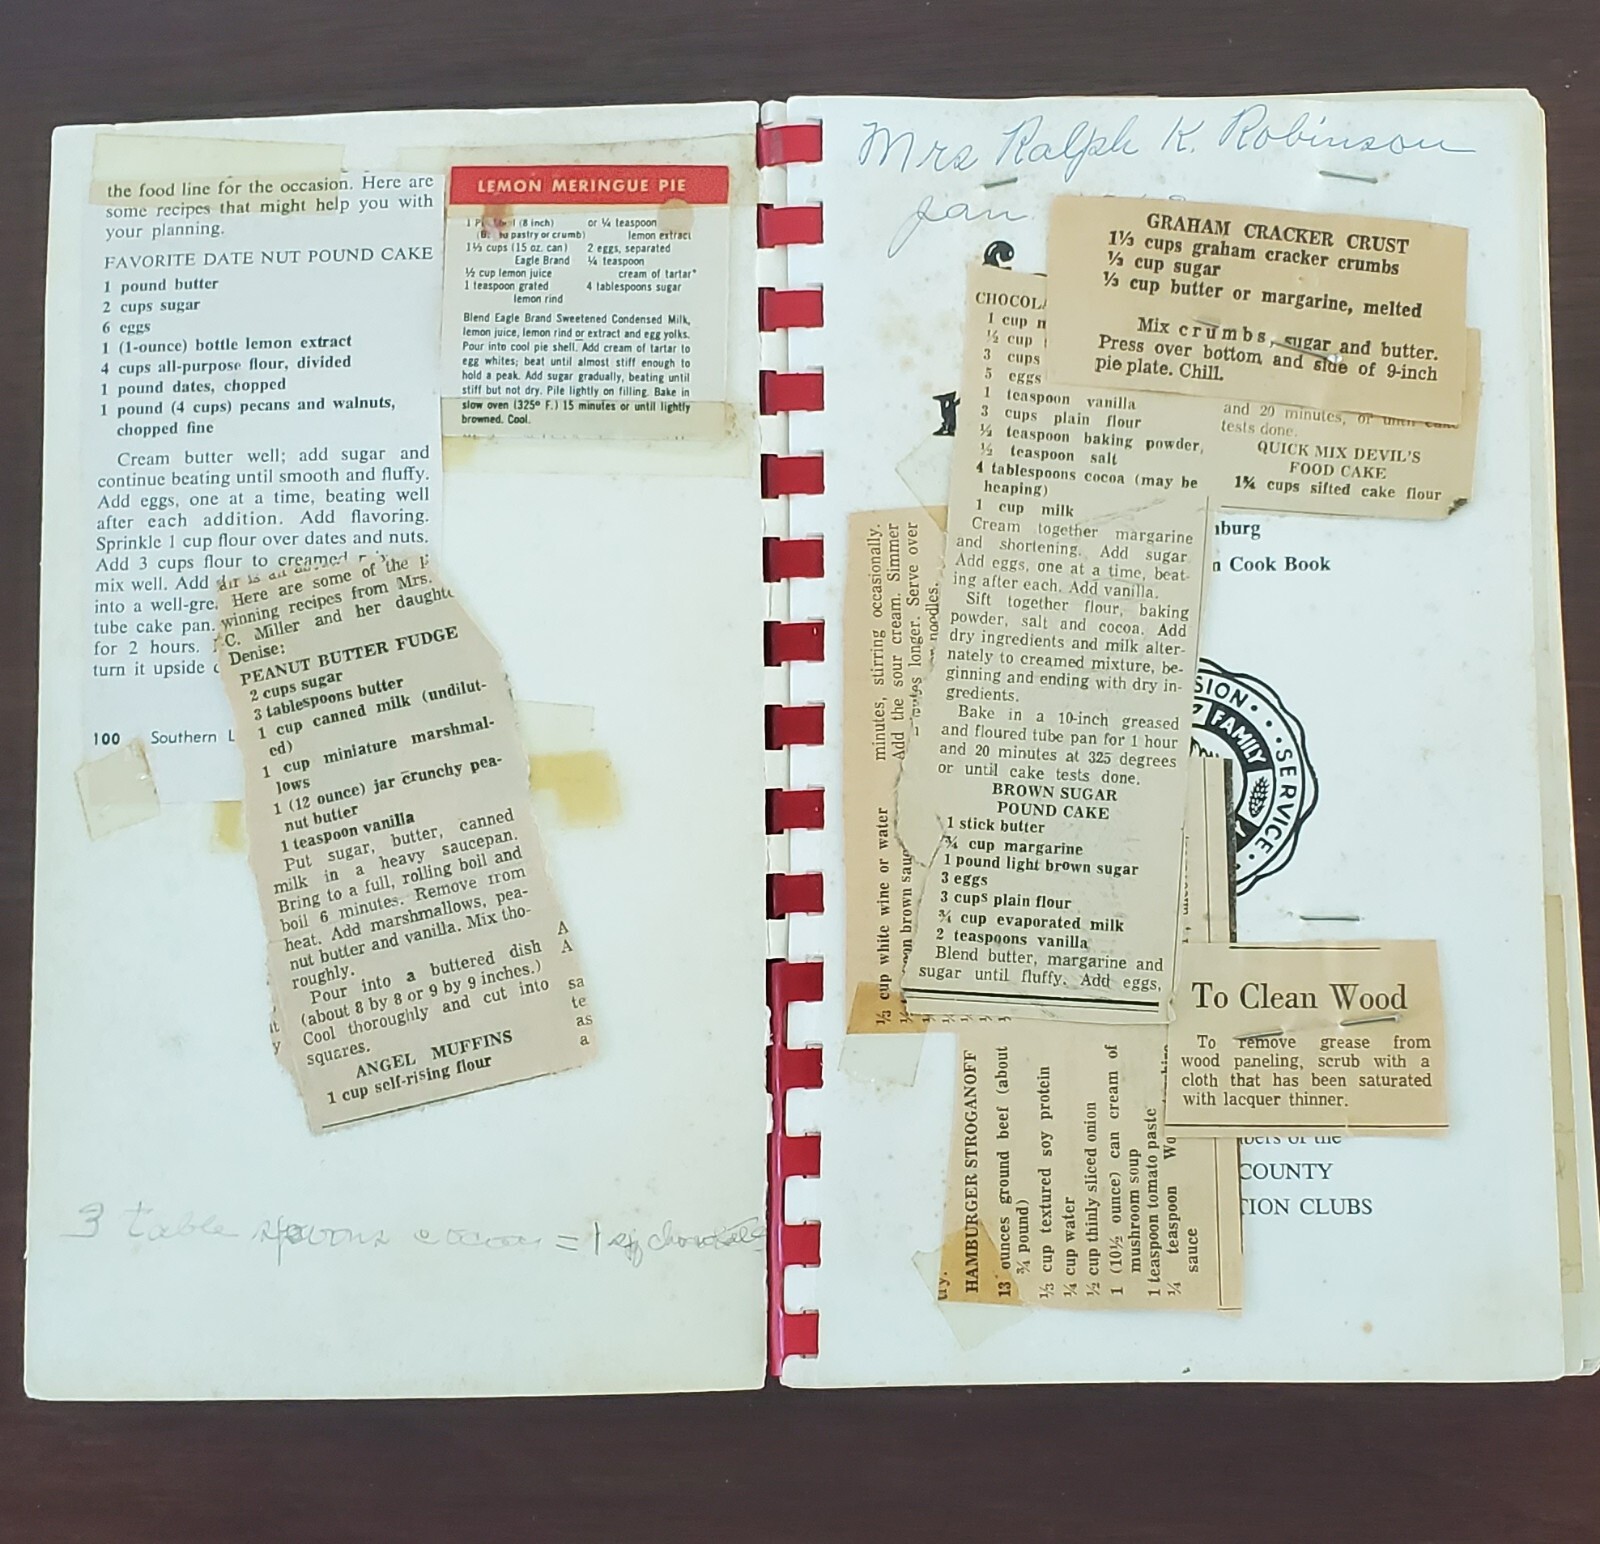 the food line for the occasion. Here are
some recipes that might help you with
your planning.
FAVORITE DATE NUT POUND CAKE
1 pound butter
2 cups sugar
6 eggs
1 (1-ounce) bottle lemon extract
4 cups all-purpose flour, divided
1 pound dates, chopped
1 pound (4 cups) pecans and walnuts,
chopped fine
Cream butter well; add sugar and
continue beating until smooth and fluffy.
Add eggs, one at a time, beating well
after each addition. Add flavoring.
Sprinkle 1 cup flour over dates and nuts.
Add 3 cups flour to creamed
mix well. Add
into a well-gre
tube cake pan.
for 2 hours.
turn it upside
100 Southern L
LEMON MERINGUE PIE
1 (8 inch)
pastry or crumb)
1⅓ cups (15 oz. can)
Eagle Brand
½ cup lemon juice
1 teaspoon grated
lemon rind
or ¼ teaspoon
lemon extract
2 eggs, separated
¼ teaspoon
cream of tartar*
4 tablespoons sugar
Blend Eagle Brand Sweetened Condensed Milk,
lemon juice, lemon rind or extract and egg yolks.
Pour into cool pie shell. Add cream of tartar to
egg whites; beat until almost stiff enough to
hold a peak. Add sugar gradually, beating until
stiff but not dry. Pile lightly on filling. Bake in
slow oven (325° F.) 15 minutes or until lightly
browned. Cool.
Here are some of the
winning recipes from Mrs.
C. Miller and her daught
Denise:
PEANUT BUTTER FUDGE
2 cups sugar
3 tablespoons butter
1 cup canned milk (undilut-
ed)
1 cup miniature marshmal-
lows
1 (12 ounce) jar crunchy pea-
nut butter
1 teaspoon vanilla
Put sugar, butter, canned
milk in a heavy saucepan.
Bring to a full, rolling boil and
boil 6 minutes. Remove from
heat. Add marshmallows, pea-
nut butter and vanilla. Mix tho-
roughly.
Pour into a buttered dish
(about 8 by 8 or 9 by 9 inches.)
Cool thoroughly and cut into
squares.
ANGEL MUFFINS
1 cup self-rising flour
A
A
sa
te
as
a
3 table spoons cocoa = 1 sq chocolate
Mrs Ralph K. Robinson
Jan.
GRAHAM CRACKER CRUST
1⅓ cups graham cracker crumbs
⅓ cup sugar
⅓ cup butter or margarine, melted
Mix crumbs, sugar and butter.
Press over bottom and side of 9-inch
pie plate. Chill.
and 20 minutes, or until cake
tests done.
QUICK MIX DEVIL'S
FOOD CAKE
1¾ cups sifted cake flour
CHOCOLA
1 cup m
½ cup
3 cups
5 eggs
1 teaspoon vanilla
3 cups plain flour
½ teaspoon baking powder,
½ teaspoon salt
4 tablespoons cocoa (may be
heaping)
1 cup milk
Cream together margarine
and shortening. Add sugar
Add eggs, one at a time, beat-
ing after each. Add vanilla.
Sift together flour, baking
powder, salt and cocoa. Add
dry ingredients and milk alter-
nately to creamed mixture, be-
ginning and ending with dry in-
gredients.
Bake in a 10-inch greased
and floured tube pan for 1 hour
and 20 minutes at 325 degrees
or until cake tests done.
BROWN SUGAR
POUND CAKE
1 stick butter
¾ cup margarine
1 pound light brown sugar
3 eggs
3 cups plain flour
¾ cup evaporated milk
2 teaspoons vanilla
Blend butter, margarine and
sugar until fluffy. Add eggs,
nburg
n Cook Book
SION • SERVICE •
FAMILY
minutes, stirring occasionally.
Add the sour cream. Simmer
longer. Serve over
noodles.
⅓ cup white wine or water
on brown sug
To Clean Wood
To remove grease from
wood paneling, scrub with a
cloth that has been saturated
with lacquer thinner.
HAMBURGER STROGANOFF
13 ounces ground beef (about
¾ pound)
⅓ cup textured soy protein
¼ cup water
½ cup thinly sliced onion
1 (10½ ounce) can cream of
mushroom soup
1 teaspoon tomato paste
¼ teaspoon Wo
sauce
bers of the
COUNTY
TION CLUBS